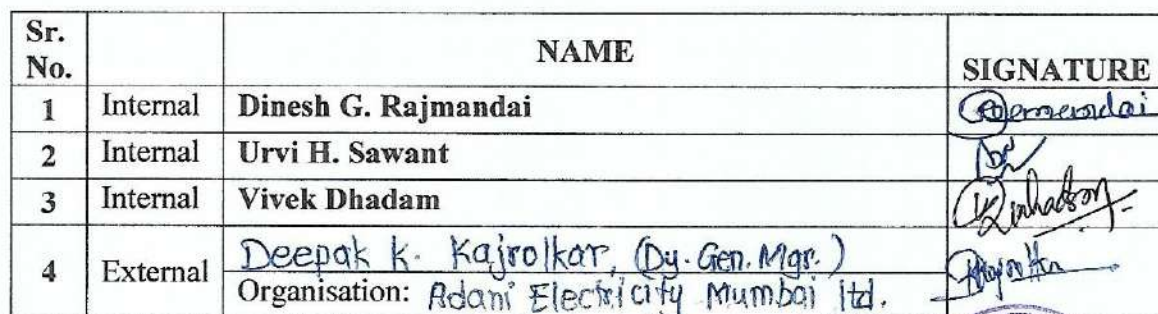 Sr. No. NAME SIGNATURE
1 Internal Dinesh G. Rajmandai
2 Internal Urvi H. Sawant
3 Internal Vivek Dhadam
4 External Deepak K. Kajrolkar, (Dy. Gen. Mgr.)
Organisation: Adani Electricity Mumbai ltd.